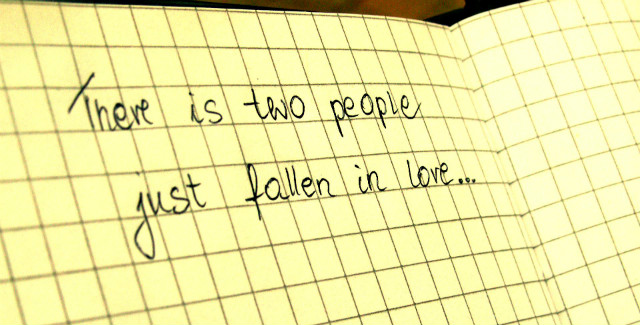 There is two people
just fallen in love...